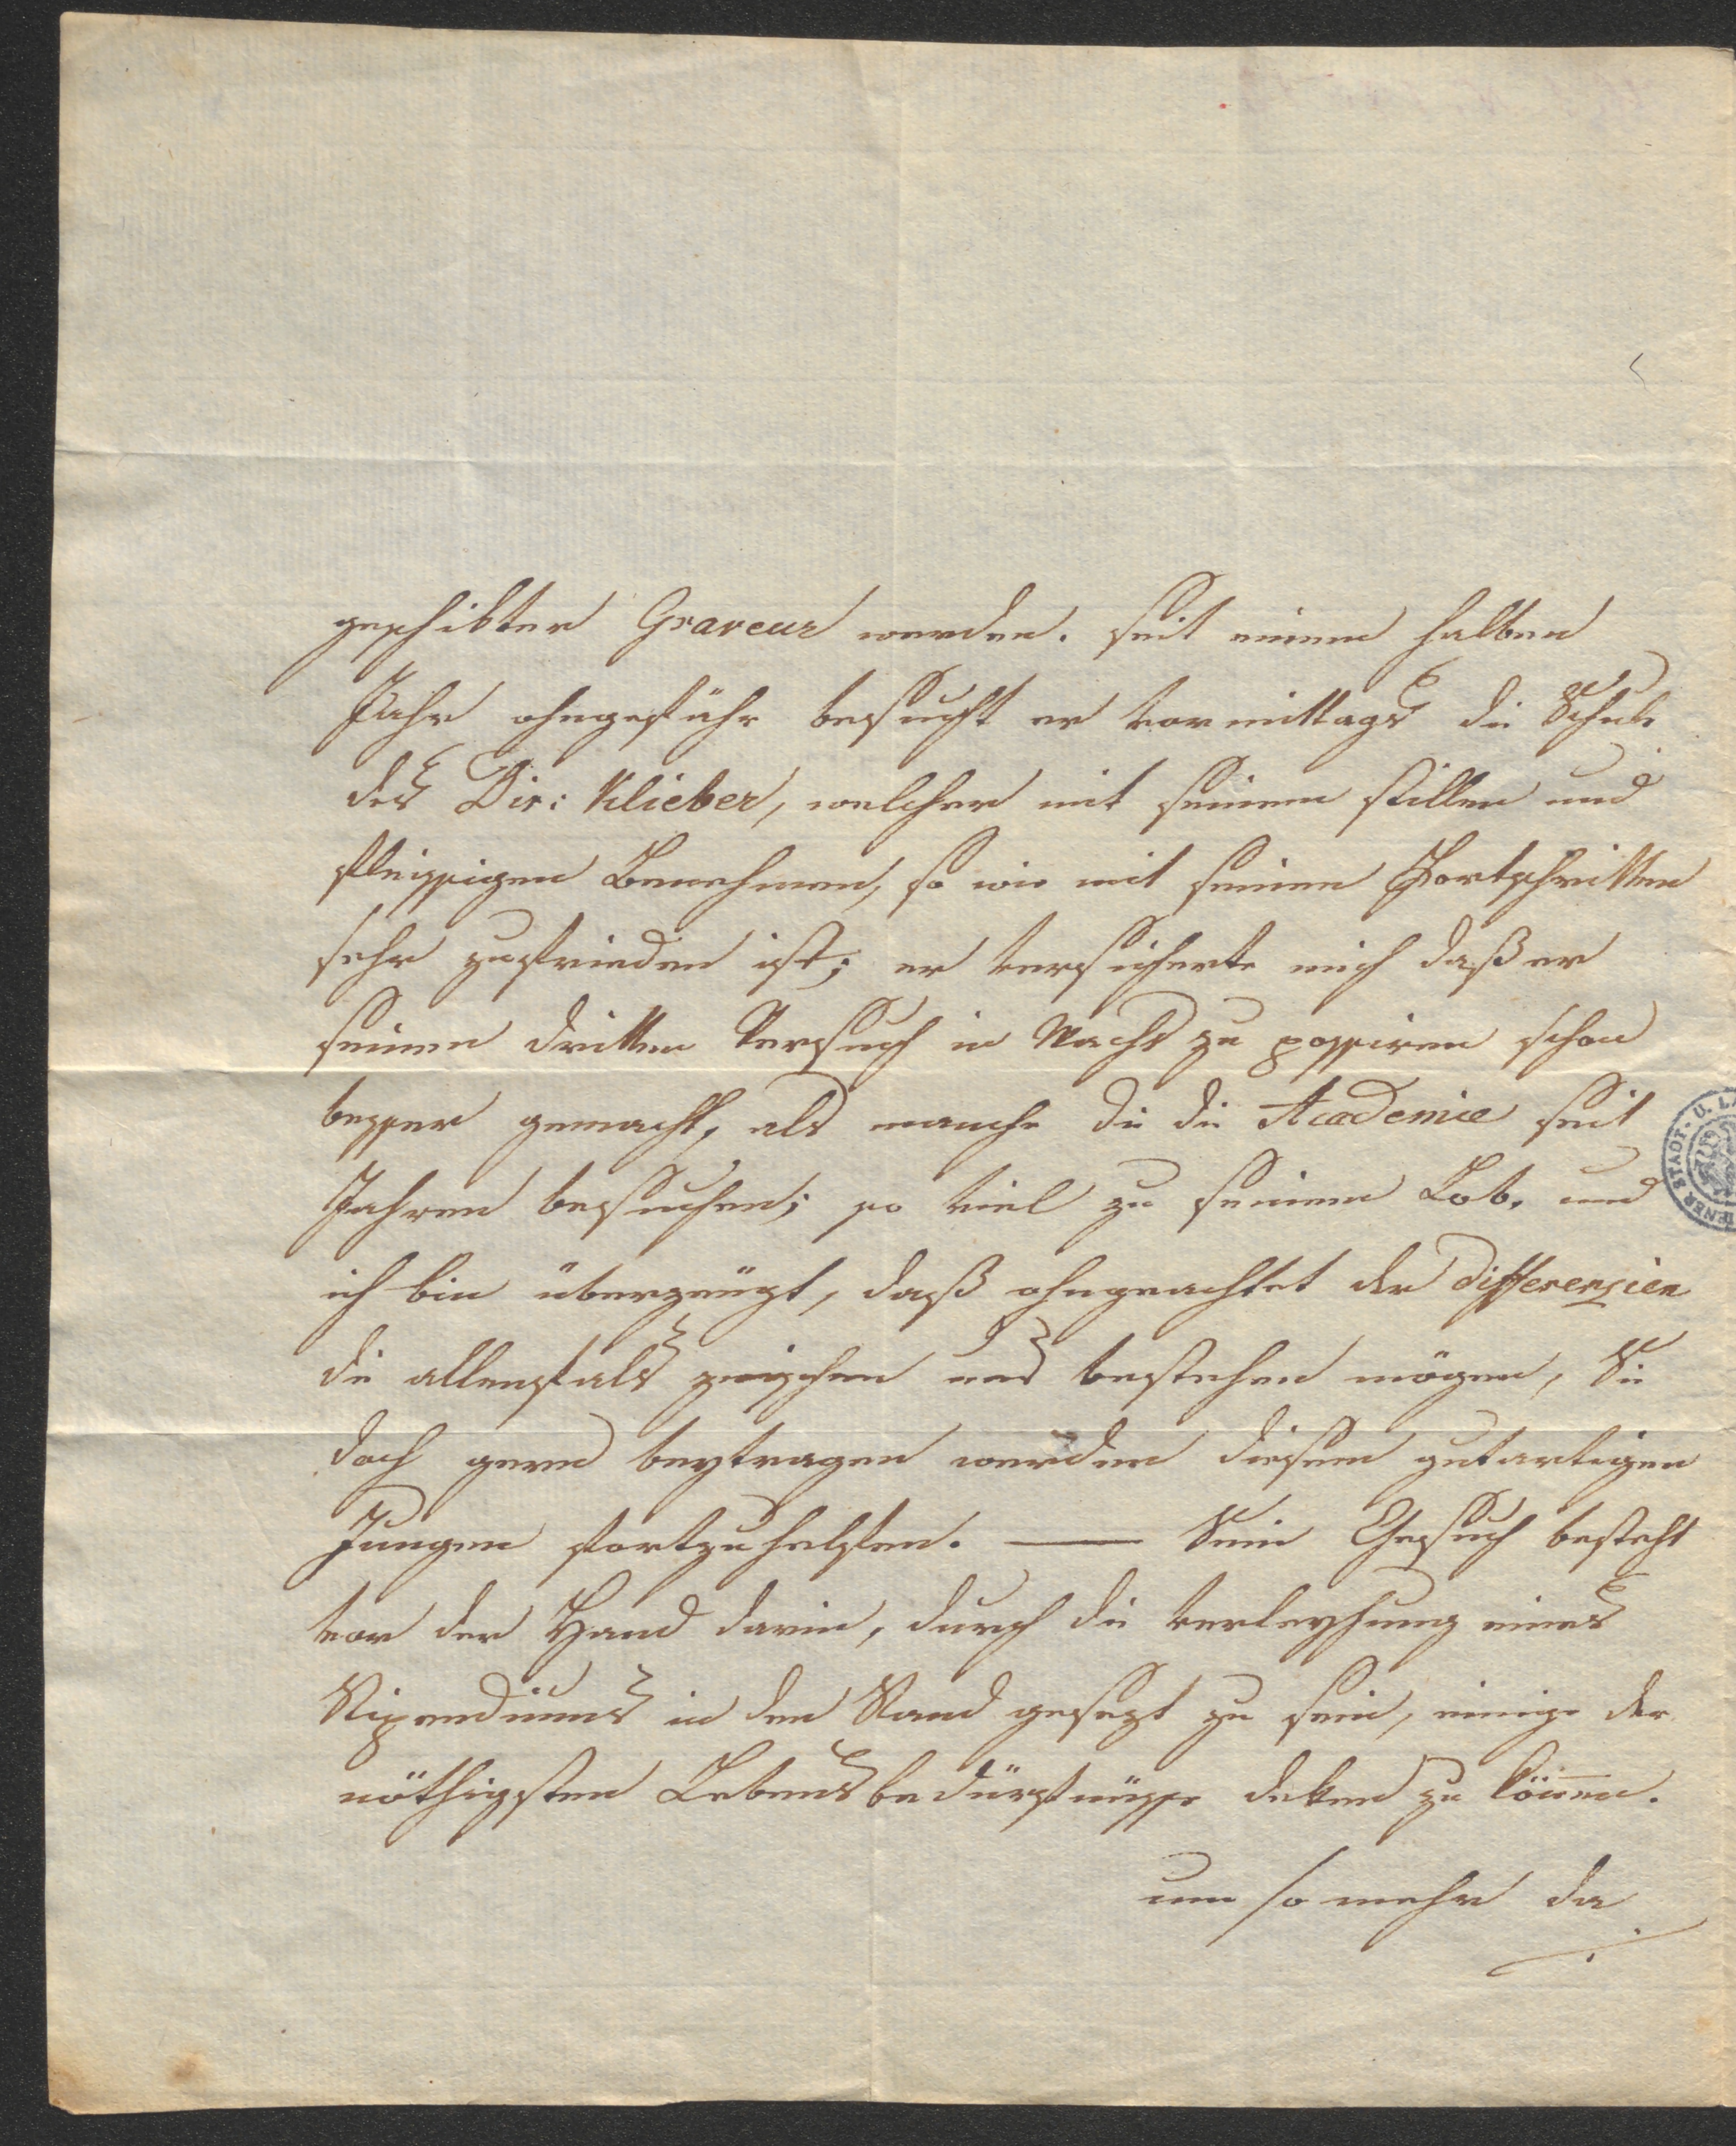 geschikter Graveur werden. seit einem halben
Jahr ohngefähr besucht er vormittags die Schule
des Dir: Klieber, welcher mit seinem stillen und
fleissigen Benehmen, so wie mit seinen Fortschritten
sehr zufrieden ist; er versicherte mich daß er
seinen dritten Versuch in Wachs zu possiren schon
besser gemacht, als manche die die Academie seit
Jahren besuchen; so viel zu seinem Lob, und
ich bin überzeugt, daß ohngeachtet der Differenzien
die allenfals zwischen uns bestehen mögen, Sie
doch gern beytragen werden diesem gutartigen
Jungen fortzuhelfen. — Sein Gesuch besteht
vor der Hand darin, durch die verleyhung eines
Stipendiums in den Stand gesezt zu sein, einige der
nöthigsten Lebensbedürfnisse deken zu können.
um so mehr da